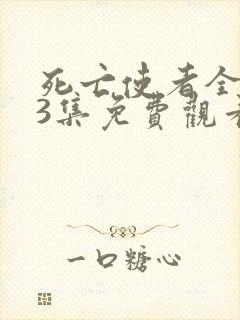 死亡使者全
3集免費觀看
一口糖心